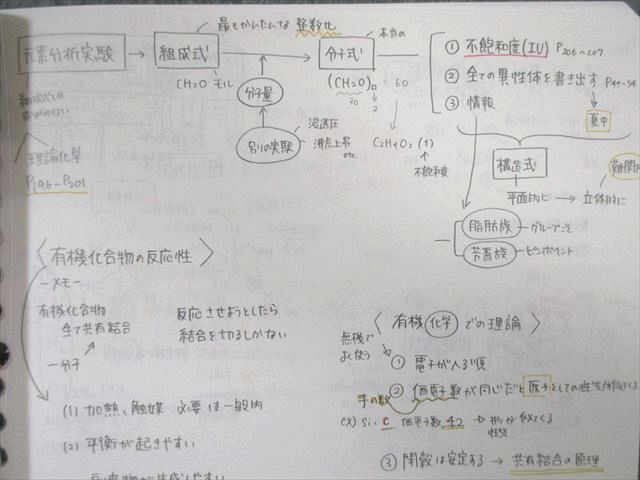 最もかんたんな 整数比
本当の
元素分析実験 → 組成式 → 分子式
CH2O モル
分子量
(CH2O)n = 60
30
2
別の実験
浸透圧
沸点上昇
etc.
C2H4O2 (1)
不飽和度
理論化学
P196~P201
① 不飽和度(IU) P206~207
② 全ての異性体を書き出す P44~54
③ 情報
構造式
平面的に → 立体的に
脂肪族 グループこそ
芳香族 ピンポイント
〈有機化合物の反応性〉
-メモ-
有機化合物
全て共有結合
一分子
反応させようとしたら
結合を切るしかない
(1) 加熱、触媒 必要は一般的
(2) 平衡が起きやすい
〈有機化学での理論〉
無機で
よく使う
① 電子が入る順
② 価電子数が同じだと原子としての性質が似てくる
手の数
ex) Si, C 価電子数 4コ → 形が似てくる
性質
③ 閉殻は安定する → 共有結合の原理